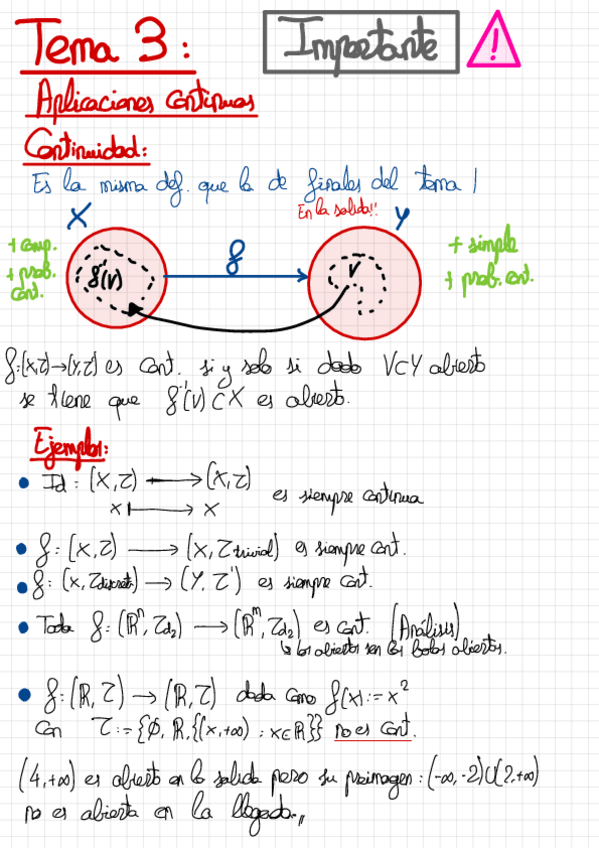 Tema 3:
Importante
!
Aplicaciones continuas
Continuidad:
Es la misma def. que la de finales del tema 1
En la salida!!
X
Y
+ comp.
+ prob.
cont.
f⁻¹(V)
f
V
+ simple
+ prob. cont.
f:(X,τ)→(Y,τ') es cont. si y solo si dado V⊂Y abierto
se tiene que f⁻¹(V)⊂X es abierto.
Ejemplos:
• Id: (X,τ) ⟶ (X,τ)
x ⟼ x
es siempre continua
• f: (X,τ) ⟶ (X,τtrivial) es siempre cont.
• f: (X,τdiscreta) → (Y,τ') es siempre cont.
• Toda f: (ℝⁿ,τd₂) ⟶ (ℝᵐ,τd₂) es cont. (Análisis)
↳ los abiertos son las bolas abiertas.
• f:(ℝ,τ) → (ℝ,τ) dada como f(x):=x²
Con τ:={∅,ℝ,{(x,+∞) : x∈ℝ}} no es cont.
(4,+∞) es abierto en la salida pero su preimagen: (-∞,-2)∪(2,+∞)
no es abierta en la llegada.,,